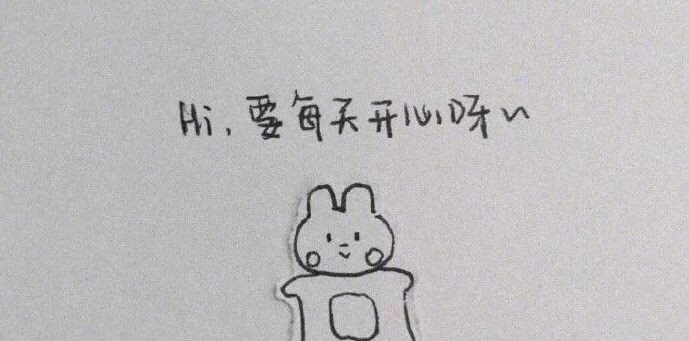 Hi，要每天开心呀~